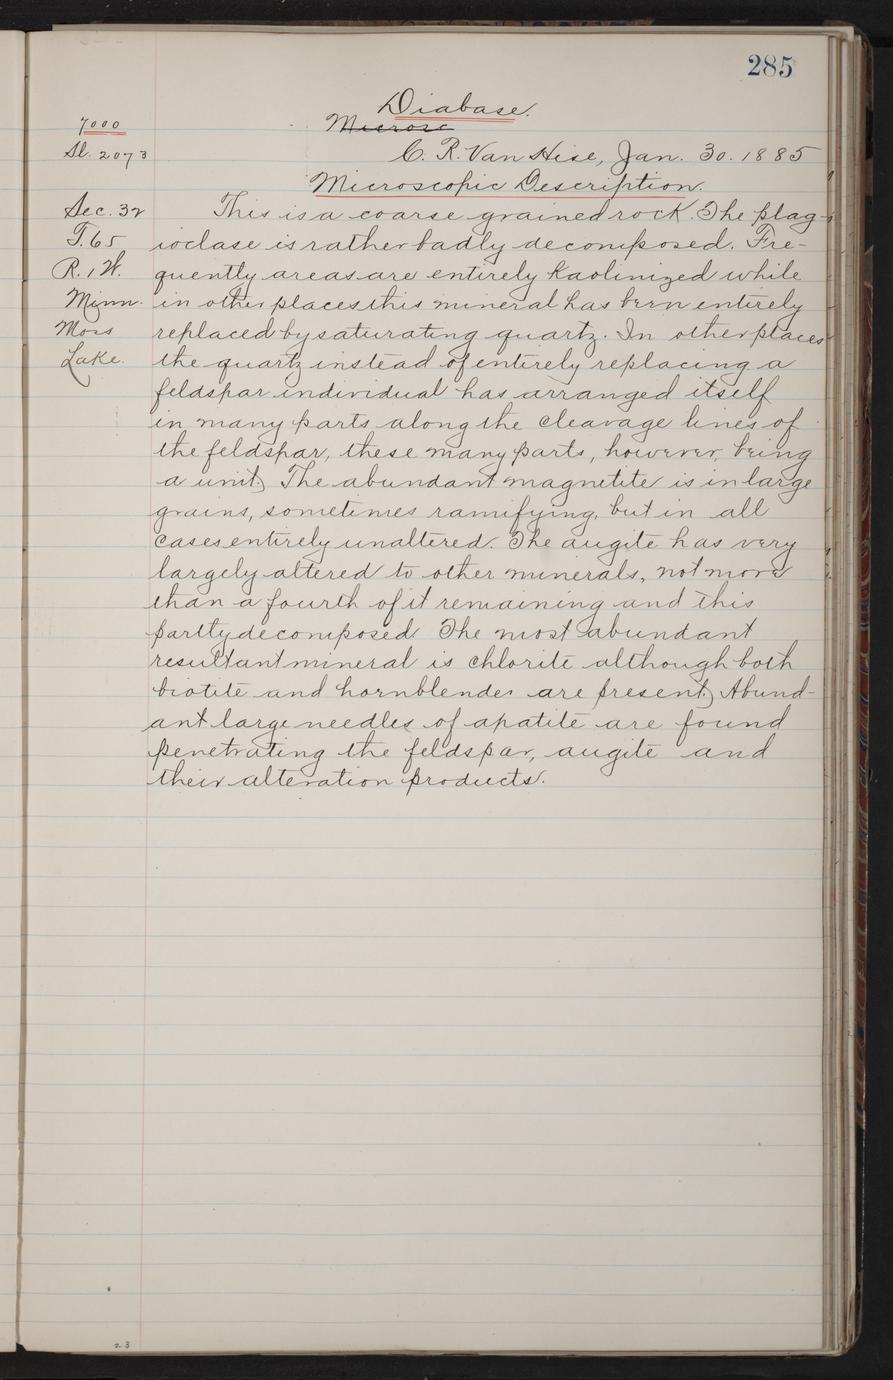 285
Diabase.
7000
Microsc
Sl. 2073
C. R. Van Hise, Jan. 30. 1885
Microscopic Description.
Sec. 32
T. 65
R. 1 W.
Minn.
Moss
Lake.
This is a coarse grained rock. The plag-
ioclase is rather badly decomposed. Fre-
quently areas are entirely kaolinized while
in other places this mineral has been entirely
replaced by saturating quartz. In other places
the quartz instead of entirely replacing a
feldspar individual has arranged itself
in many parts along the cleavage lines of
the feldspar, these many parts, however, being
a unit.) The abundant magnetite is in large
grains, sometimes ramifying, but in all
cases entirely unaltered. The augite has very
largely altered to other minerals, not more
than a fourth of it remaining and this
partly decomposed. The most abundant
resultant mineral is chlorite although both
biotite and hornblende are present.) Abund-
ant large needles of apatite are found
penetrating the feldspar, augite and
their alteration products.
23